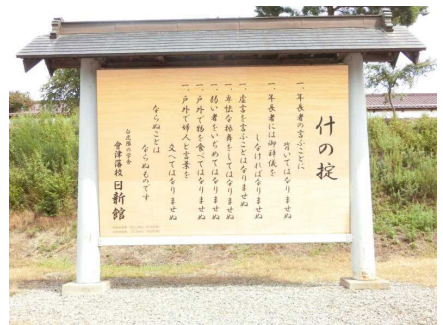 什の掟
一、年長者の言ふことに
背いてはなりませぬ
一、年長者には御辞儀を
しなければなりませぬ
一、虚言を言ふことはなりませぬ
一、卑怯な振舞をしてはなりませぬ
一、弱い者をいぢめてはなりませぬ
一、戸外で物を食べてはなりませぬ
一、戸外で婦人と言葉を
交へてはなりませぬ
ならぬことは
ならぬものです
會津藩校日新館